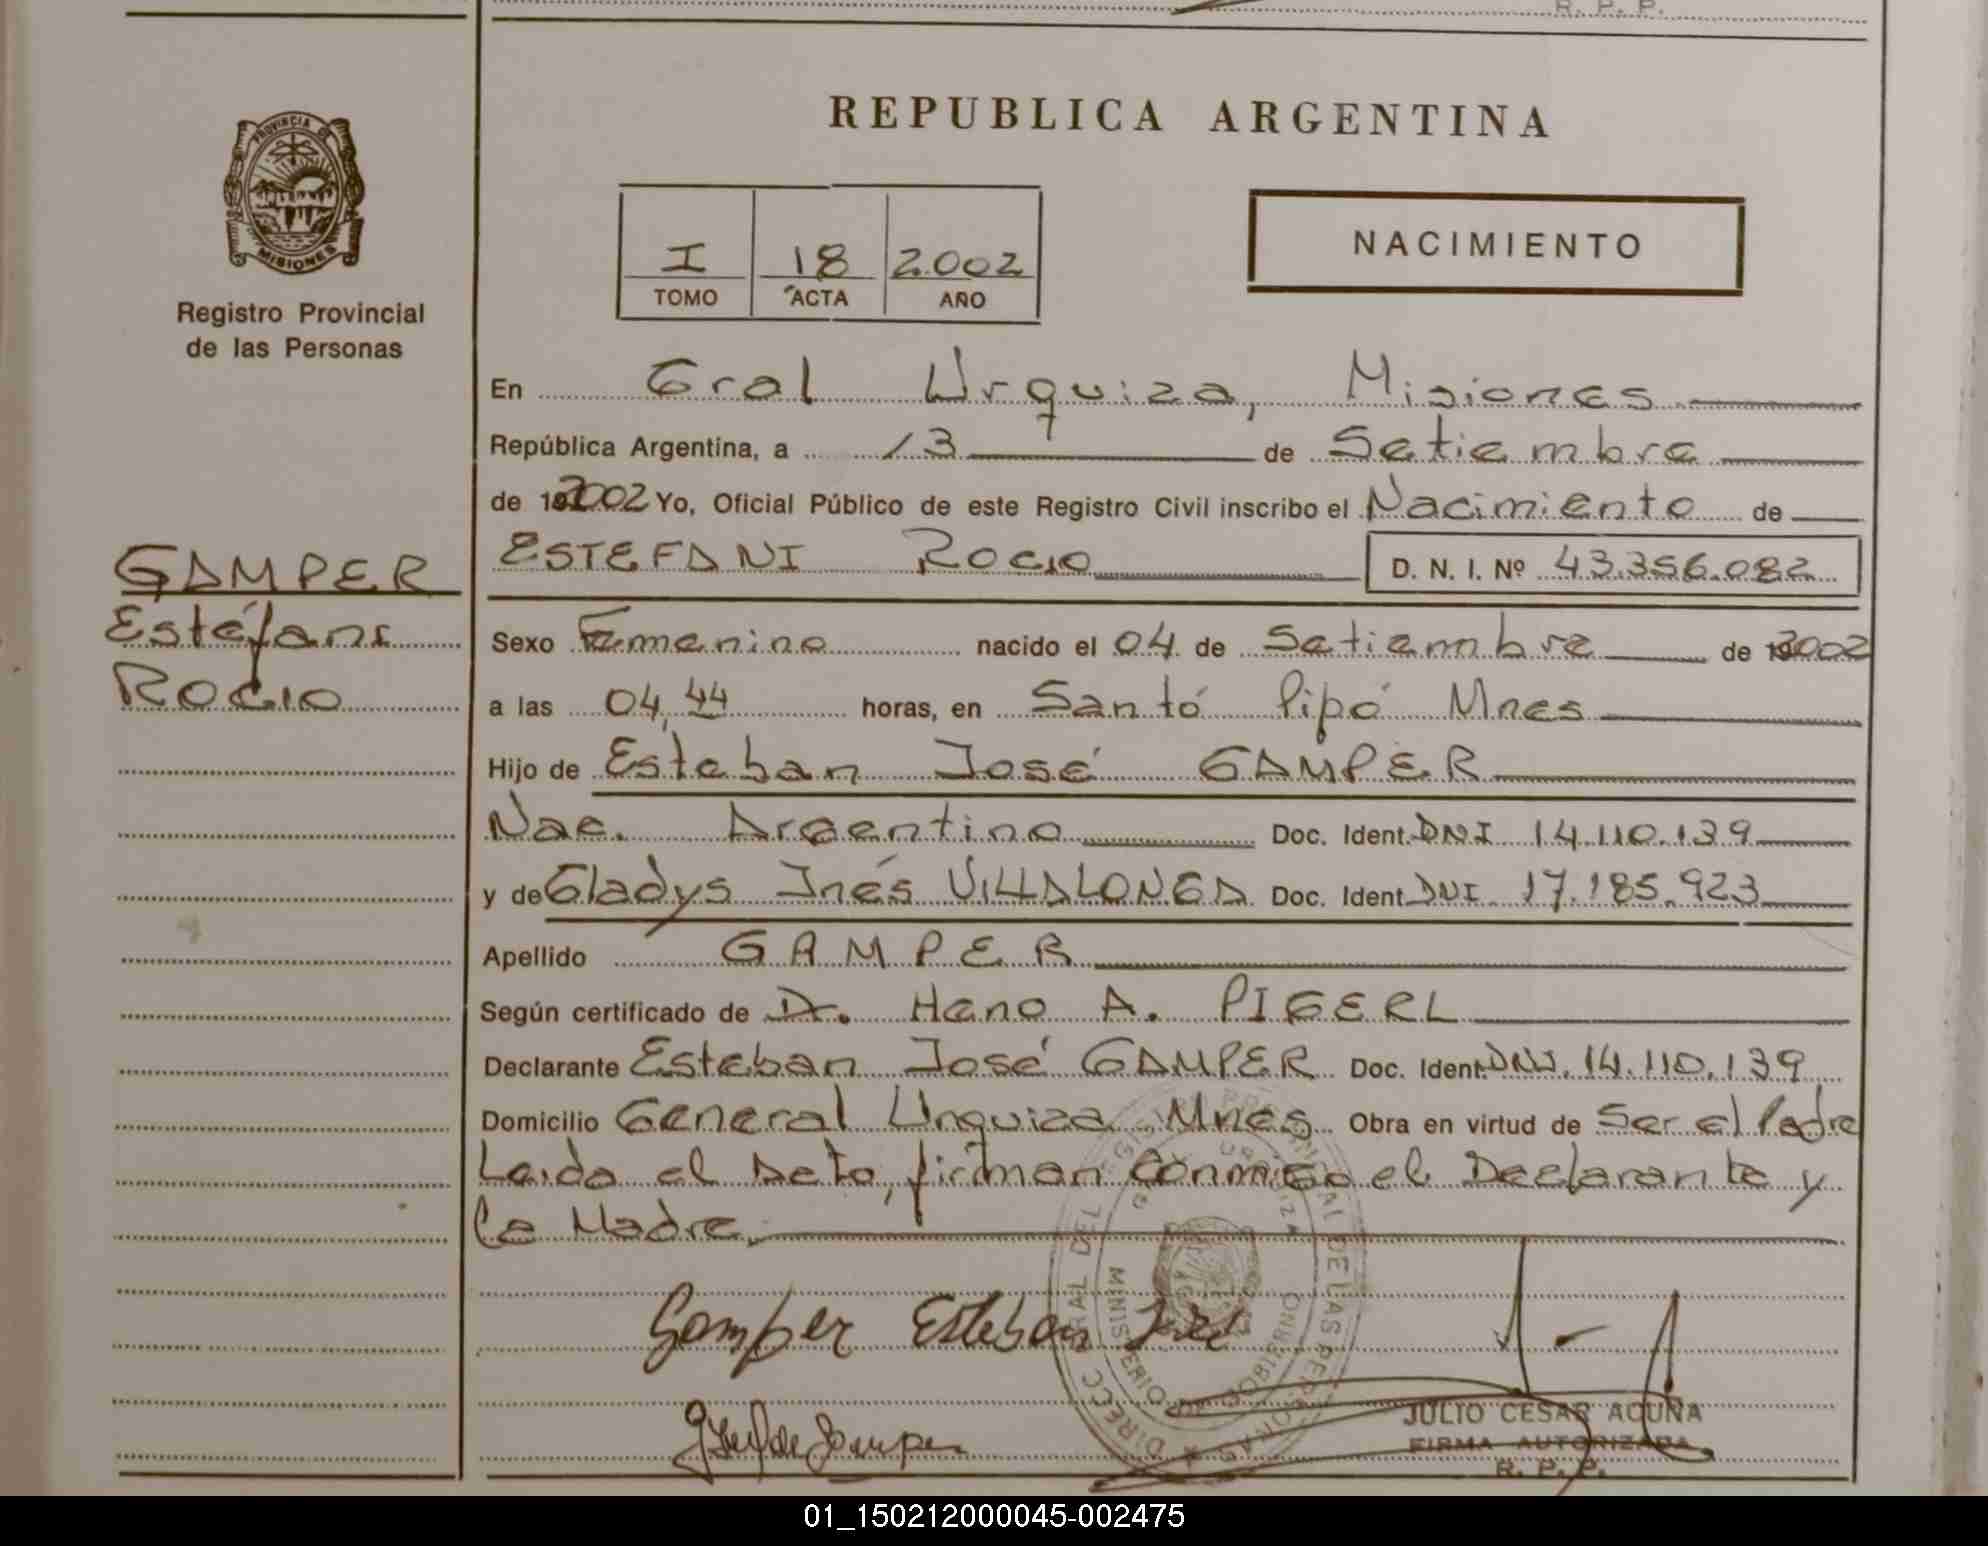 R. P. P.
REPUBLICA ARGENTINA
PROVINCIA DE
MISIONES
Registro Provincial
de las Personas
I 18 2.002
TOMO ACTA AÑO
NACIMIENTO
En Gral Urquiza, Misiones
República Argentina, a 13 de Setiembre
de 2002 Yo, Oficial Público de este Registro Civil inscribo el Nacimiento de
ESTEFANI ROCIO D. N. I. Nº 43.356.082
GAMPER
Estéfani
ROCIO
Sexo Femenino nacido el 04 de Setiembre de 2002
a las 04,44 horas, en Santó Pipó Mnes
Hijo de Esteban José GAMPER
Nac. Argentino Doc. Ident. DNI 14.110.139
y de Gladys Inés VILLALONGA Doc. Ident. DNI 17.185.923
Apellido GAMPER
Según certificado de Dr. Hano A. PIGERL
Declarante Esteban José GAMPER Doc. Ident. DNI. 14.110.139
Domicilio General Urquiza Mnes. Obra en virtud de Ser el Padre
Leido el Acto, firman conmigo el Declarante y
la Madre.
Gamper Esteban José
de Gamper
DIRECC RAL DEL REGIS PROVINCIAL DE LAS PERSONAS
MINISTERIO DE GOBIERNO
URQUIZA
JULIO CESAR ACUÑA
FIRMA AUTORIZADA
R. P. P.
01_150212000045-002475